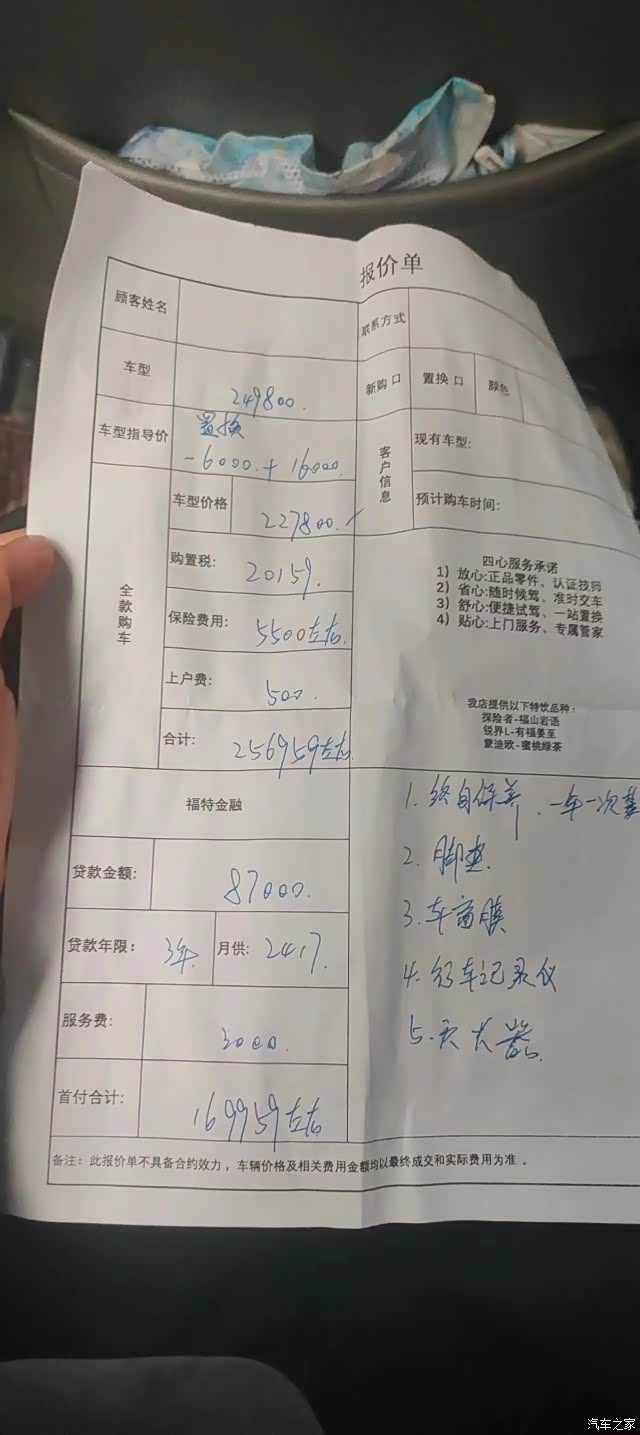 报价单
顾客姓名
联系方式
车型
249800.
新购口
置换口
颜色
车型指导价
置换
-6000.+16000.
客户信息
现有车型:
预计购车时间:
全款购车
车型价格
227800.
购置税:
20159.
保险费用:
5500左右.
上户费:
500.
合计:
256959左右.
四心服务承诺
1）放心:正品零件、认证技师
2）省心:随时候驾、准时交车
3）舒心:便捷试驾、一站置换
4）贴心:上门服务、专属管家
我店提供以下特饮品种：
探险者-福山岩语
锐界L-有福姜至
蒙迪欧-蜜桃绿茶
福特金融
贷款金额:
87000.
贷款年限:
3年
月供:
2417.
服务费:
3000.
首付合计:
169959左右
1. 终身保养，一年一次基
2. 脚垫.
3. 车窗膜
4. 行车记录仪
5. 灭火器.
备注：此报价单不具备合约效力，车辆价格及相关费用金额均以最终成交和实际费用为准。
汽车之家